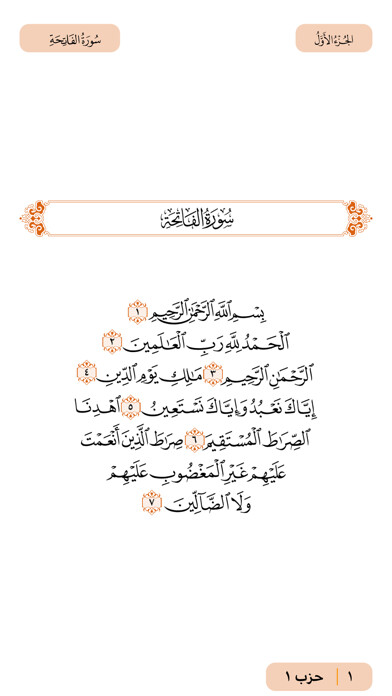 الجزء الأول
سورة الفاتحة
سُورَةُ الفَاتِحَةِ
بِسْمِ اللَّهِ الرَّحْمَٰنِ الرَّحِيمِ ١
الْحَمْدُ لِلَّهِ رَبِّ الْعَالَمِينَ ٢
الرَّحْمَٰنِ الرَّحِيمِ ٣ مَالِكِ يَوْمِ الدِّينِ ٤
إِيَّاكَ نَعْبُدُ وَإِيَّاكَ نَسْتَعِينُ ٥ اهْدِنَا
الصِّرَاطَ الْمُسْتَقِيمَ ٦ صِرَاطَ الَّذِينَ أَنْعَمْتَ
عَلَيْهِمْ غَيْرِ الْمَغْضُوبِ عَلَيْهِمْ
وَلَا الضَّالِّينَ ٧
١ | حزب ١